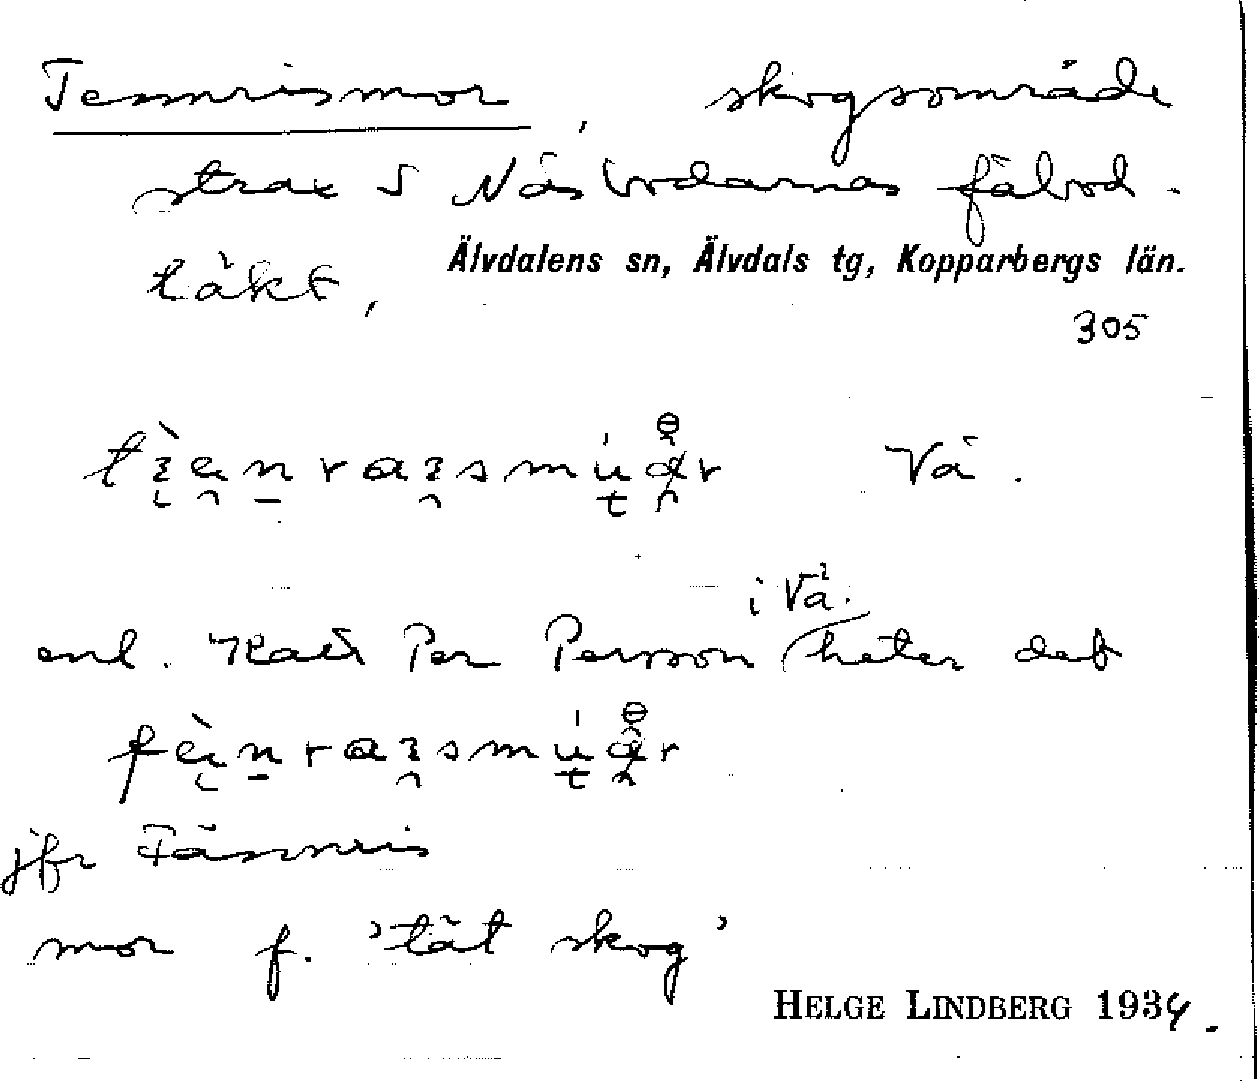 Tennrismor, skogsområde
strax S Näsbodarnas fäbod-
täkt,
Älvdalens sn, Älvdals tg, Kopparbergs län.
305
Vå.
i Vå.
enl. Per Persson heter det
jfr Tännris
mor f. 'tät skog'
HELGE LINDBERG 1934.